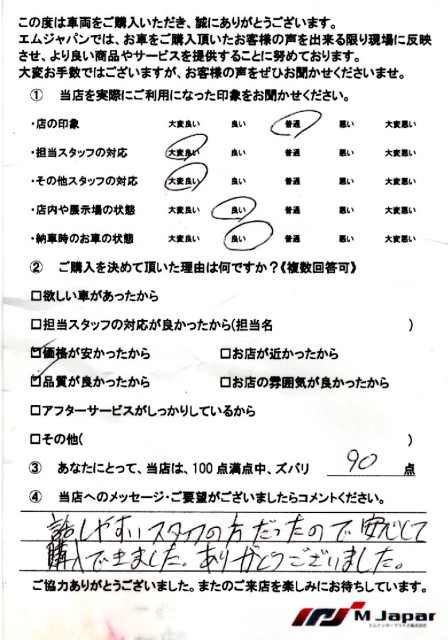 この度は車両をご購入いただき、誠にありがとうございます。
エムジャパンでは、お車をご購入頂いたお客様の声を出来る限り現場に反映
させ、より良い商品やサービスを提供することに努めております。
大変お手数ではございますが、お客様の声をぜひお聞かせくださいませ。
① 当店を実際にご利用になった印象をお聞かせください。
・店の印象 大変良い 良い 普通 悪い 大変悪い
・担当スタッフの対応 大変良い 良い 普通 悪い 大変悪い
・その他スタッフの対応 大変良い 良い 普通 悪い 大変悪い
・店内や展示場の状態 大変良い 良い 普通 悪い 大変悪い
・納車時のお車の状態 大変良い 良い 普通 悪い 大変悪い
② ご購入を決めて頂いた理由は何ですか？《複数回答可》
□欲しい車があったから
□担当スタッフの対応が良かったから(担当名 )
☑価格が安かったから □お店が近かったから
☑品質が良かったから □お店の雰囲気が良かったから
□アフターサービスがしっかりしているから
□その他( )
③ あなたにとって、当店は、100点満点中、ズバリ 90 点
④ 当店へのメッセージ・ご要望がございましたらコメントください。
話しやすいスタッフの方だったので安心して
購入できました。ありがとうございました。
ご協力ありがとうございました。またのご来店を楽しみにお待ちしています。
M Japan